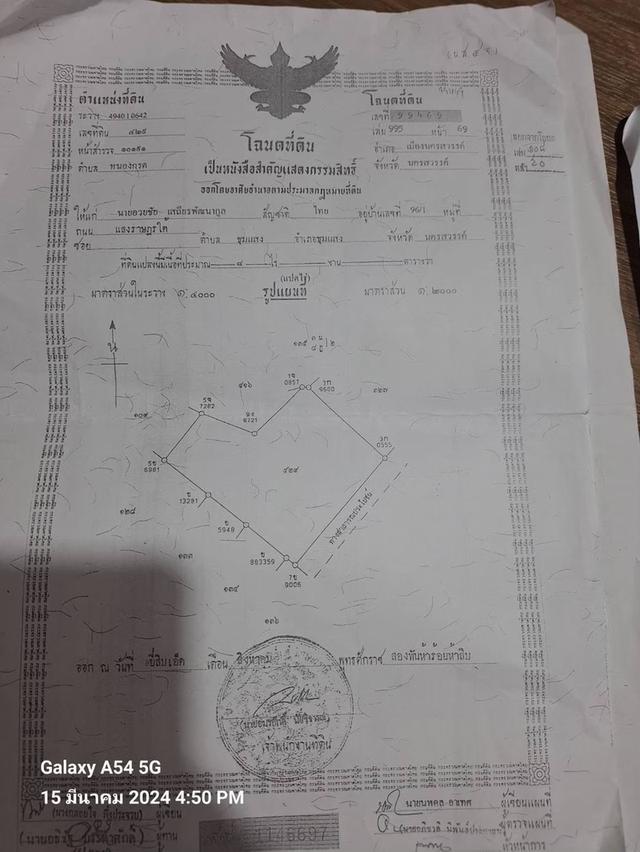 (น.ส. ๔ จ.)
ตำแหน่งที่ดิน
ระวาง 4940 I 0642
เลขที่ดิน ๔๒๙
หน้าสำรวจ ๑๐๑๕๑
ตำบล หนองกรด
โฉนดที่ดิน
เลขที่ 99469
เล่ม 995 หน้า 69
อำเภอ เมืองนครสวรรค์
จังหวัด นครสวรรค์
โฉนดที่ดิน
เป็นหนังสือสำคัญแสดงกรรมสิทธิ์
ออกโดยอาศัยอำนาจตามประมวลกฎหมายที่ดิน
ให้แก่ นายอวยชัย เสถียรพัฒนากูล สัญชาติ ไทย อยู่บ้านเลขที่ 96/1 หมู่ที่
ถนน แสงราษฎร์ใต้
ซอย ตำบล ชุมแสง อำเภอชุมแสง จังหวัด นครสวรรค์
ที่ดินแปลงนี้มีเนื้อที่ประมาณ ๘ ไร่ งาน ตารางวา
(แปดไร่)
มาตราส่วนในระวาง ๑: ๔๐๐๐ รูปแผนที่ มาตราส่วน ๑: ๒๐๐๐
น
๔๑๖
1จ
0851
3ก
9600
5จ
7282
6721
3ก
0555
๔๒๙
5ข
6981
ข
13291
ข
5949
ข
883359
7ข
9006
ทางสาธารณประโยชน์
๑๒๘
๑๓๓
๑๓๔
๑๓๖
ออก ณ วันที่ ยี่สิบเอ็ด เดือน สิงหาคม พุทธศักราช สองพันห้าร้อยห้าสิบ
เจ้าพนักงานที่ดิน
Galaxy A54 5G
15 มีนาคม 2024 4:50 PM
ผู้เขียน
ผู้ทาน
ผู้เขียนแผนที่
ผู้ตรวจแผนที่
หัวหน้าการ